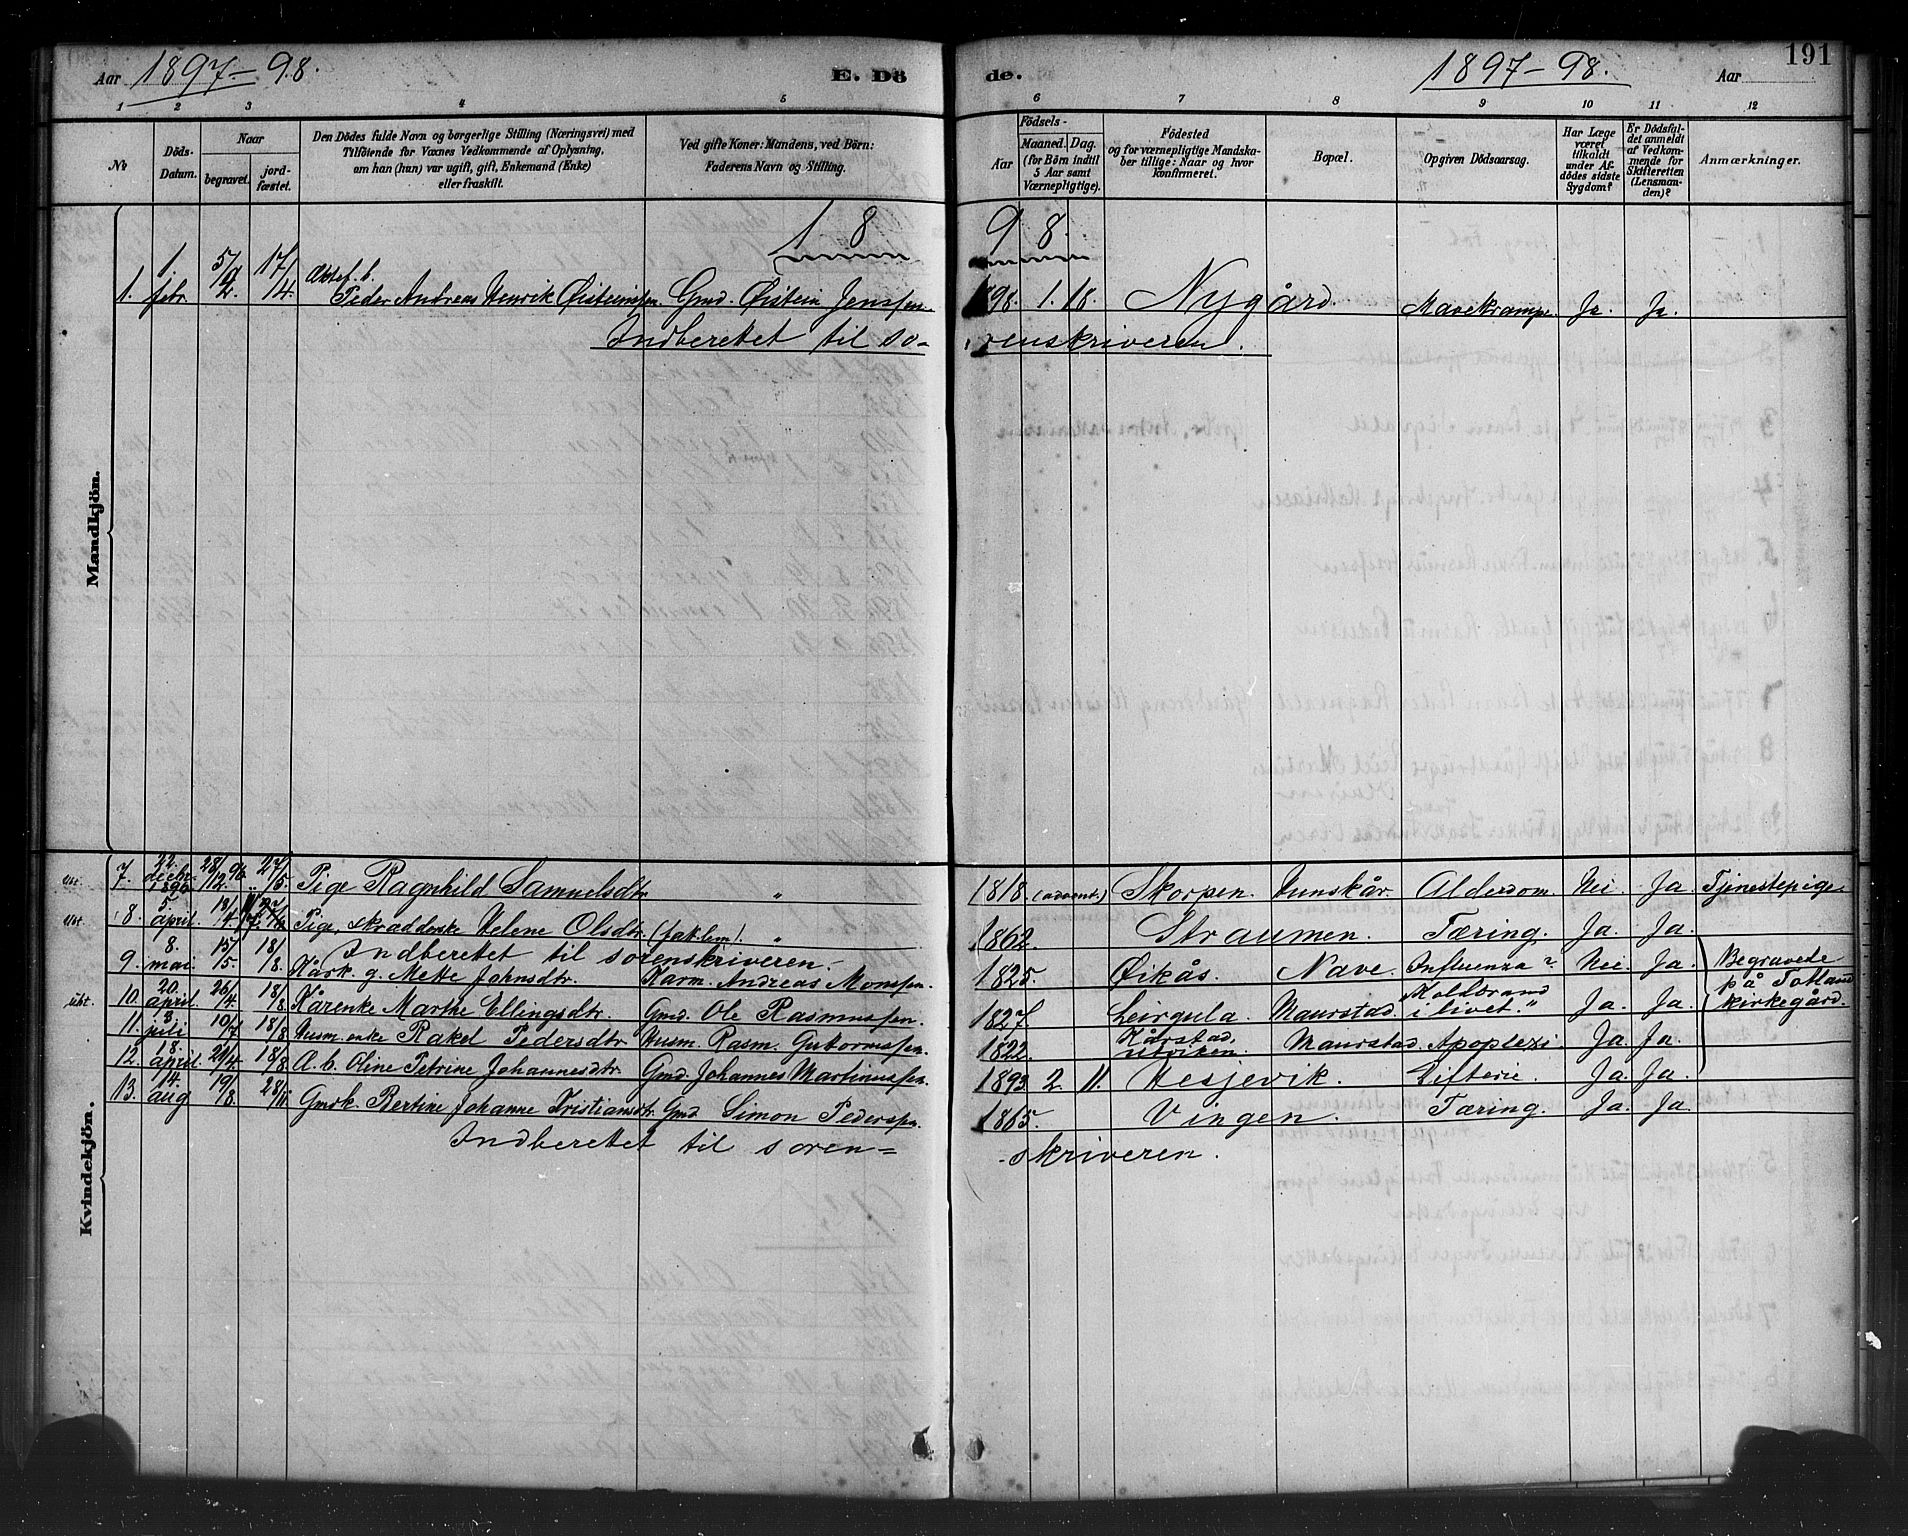 Aar 1897-98. E. Dö de. 1897-98. Aar 191
1 2 3 4 5 6 7 8 9 10 11 12
No
Döds-Datum.
Naar
begravet.
jordfæstet.
Den Dödes fulde Navn og borgerlige Stilling (Næringsvei) med
Tilföiende for Voxnes Vedkommende af Oplysning,
om han (hun) var ugift, gift, Enkemand (Enke)
eller fraskilt.
Ved gifte Koner: Mandens, ved Börn:
Faderens Navn og Stilling.
Födsels-
Aar
Maaned. Dag.
(for Börn indtil
5 Aar samt
Værnepligtige).
Födested
og for værnepligtige Mandska-
ber tillige: Naar og hvor
konfirmeret.
Bopæl.
Opgiven Dödsaarsag.
Har Læge
været
tilkaldt
under Af-
dödes sidste
Sygdom?
Er Dödsfal-
det anmeldt
af Vedkom-
mende for
Skifteretten
(Lensman-
den)?
Anmærkninger.
Mandkjön.
18 98.
1. 1 febr. 5/2. 17/4. Ektef. b. Peder Andreas Henrik Øisteinssen. Gmd. Øistein Jenssen. 98. 1. 18. Nygård. Mavekrampe. Ja. Ja.
Indberettet til so-renskriveren.
Kvindekjön.
7. 22. decbr. 1896 28/12. 96 27/5. Pige Ragnhild Samuelsdtr " 1818. (advent.) Skorpen. Hunskår. Alderdom. Nei. Ja. Tjenestepige
8. 5 april 18/4. Pige, skrædderske Helene Olsdtr. (fat.lem). " 1862. Straumen. Tæring. Ja. Ja.
Indberettet til sorenskriveren.
9. 8. mai 15/5. 18/8. Kårk. g. Mette Johnsdtr. Karm. Andreas Monssen. 1825. Øikås. Nave. Influenza? Nei. Ja. Begravede
på Totland
kirkegård.
10. 20. april. 26/4. 18/8. Kårenke Marthe Ellingsdtr. Gmd. Ole Rasmussen. 1827. Leirgula. Maurstad. "Koldbrand
i livet." Ja. Ja.
11. 3. juli 10/7. 18/8. Husm. enke Rakel Pedersdtr Husm. Rasm. Guttormssen. 1822. Hårstad,
Utviken. Maurstad. Apoplexi. Ja. Ja.
12. 18. april. 24/4. 18/8. A. b. Oline Petrine Johannesdtr. Gmd. Johannes Martinussen. 1893. 2. 11. Hesjevik. Difterie. Ja. Ja.
13. 14. aug 19/8. Gmdk. Bertine Johanne Kristiansdtr. Gmd Simon Pederssen. 1865. Vingen. Tæring. Ja. Ja.
Indberettet til soren-skriveren.